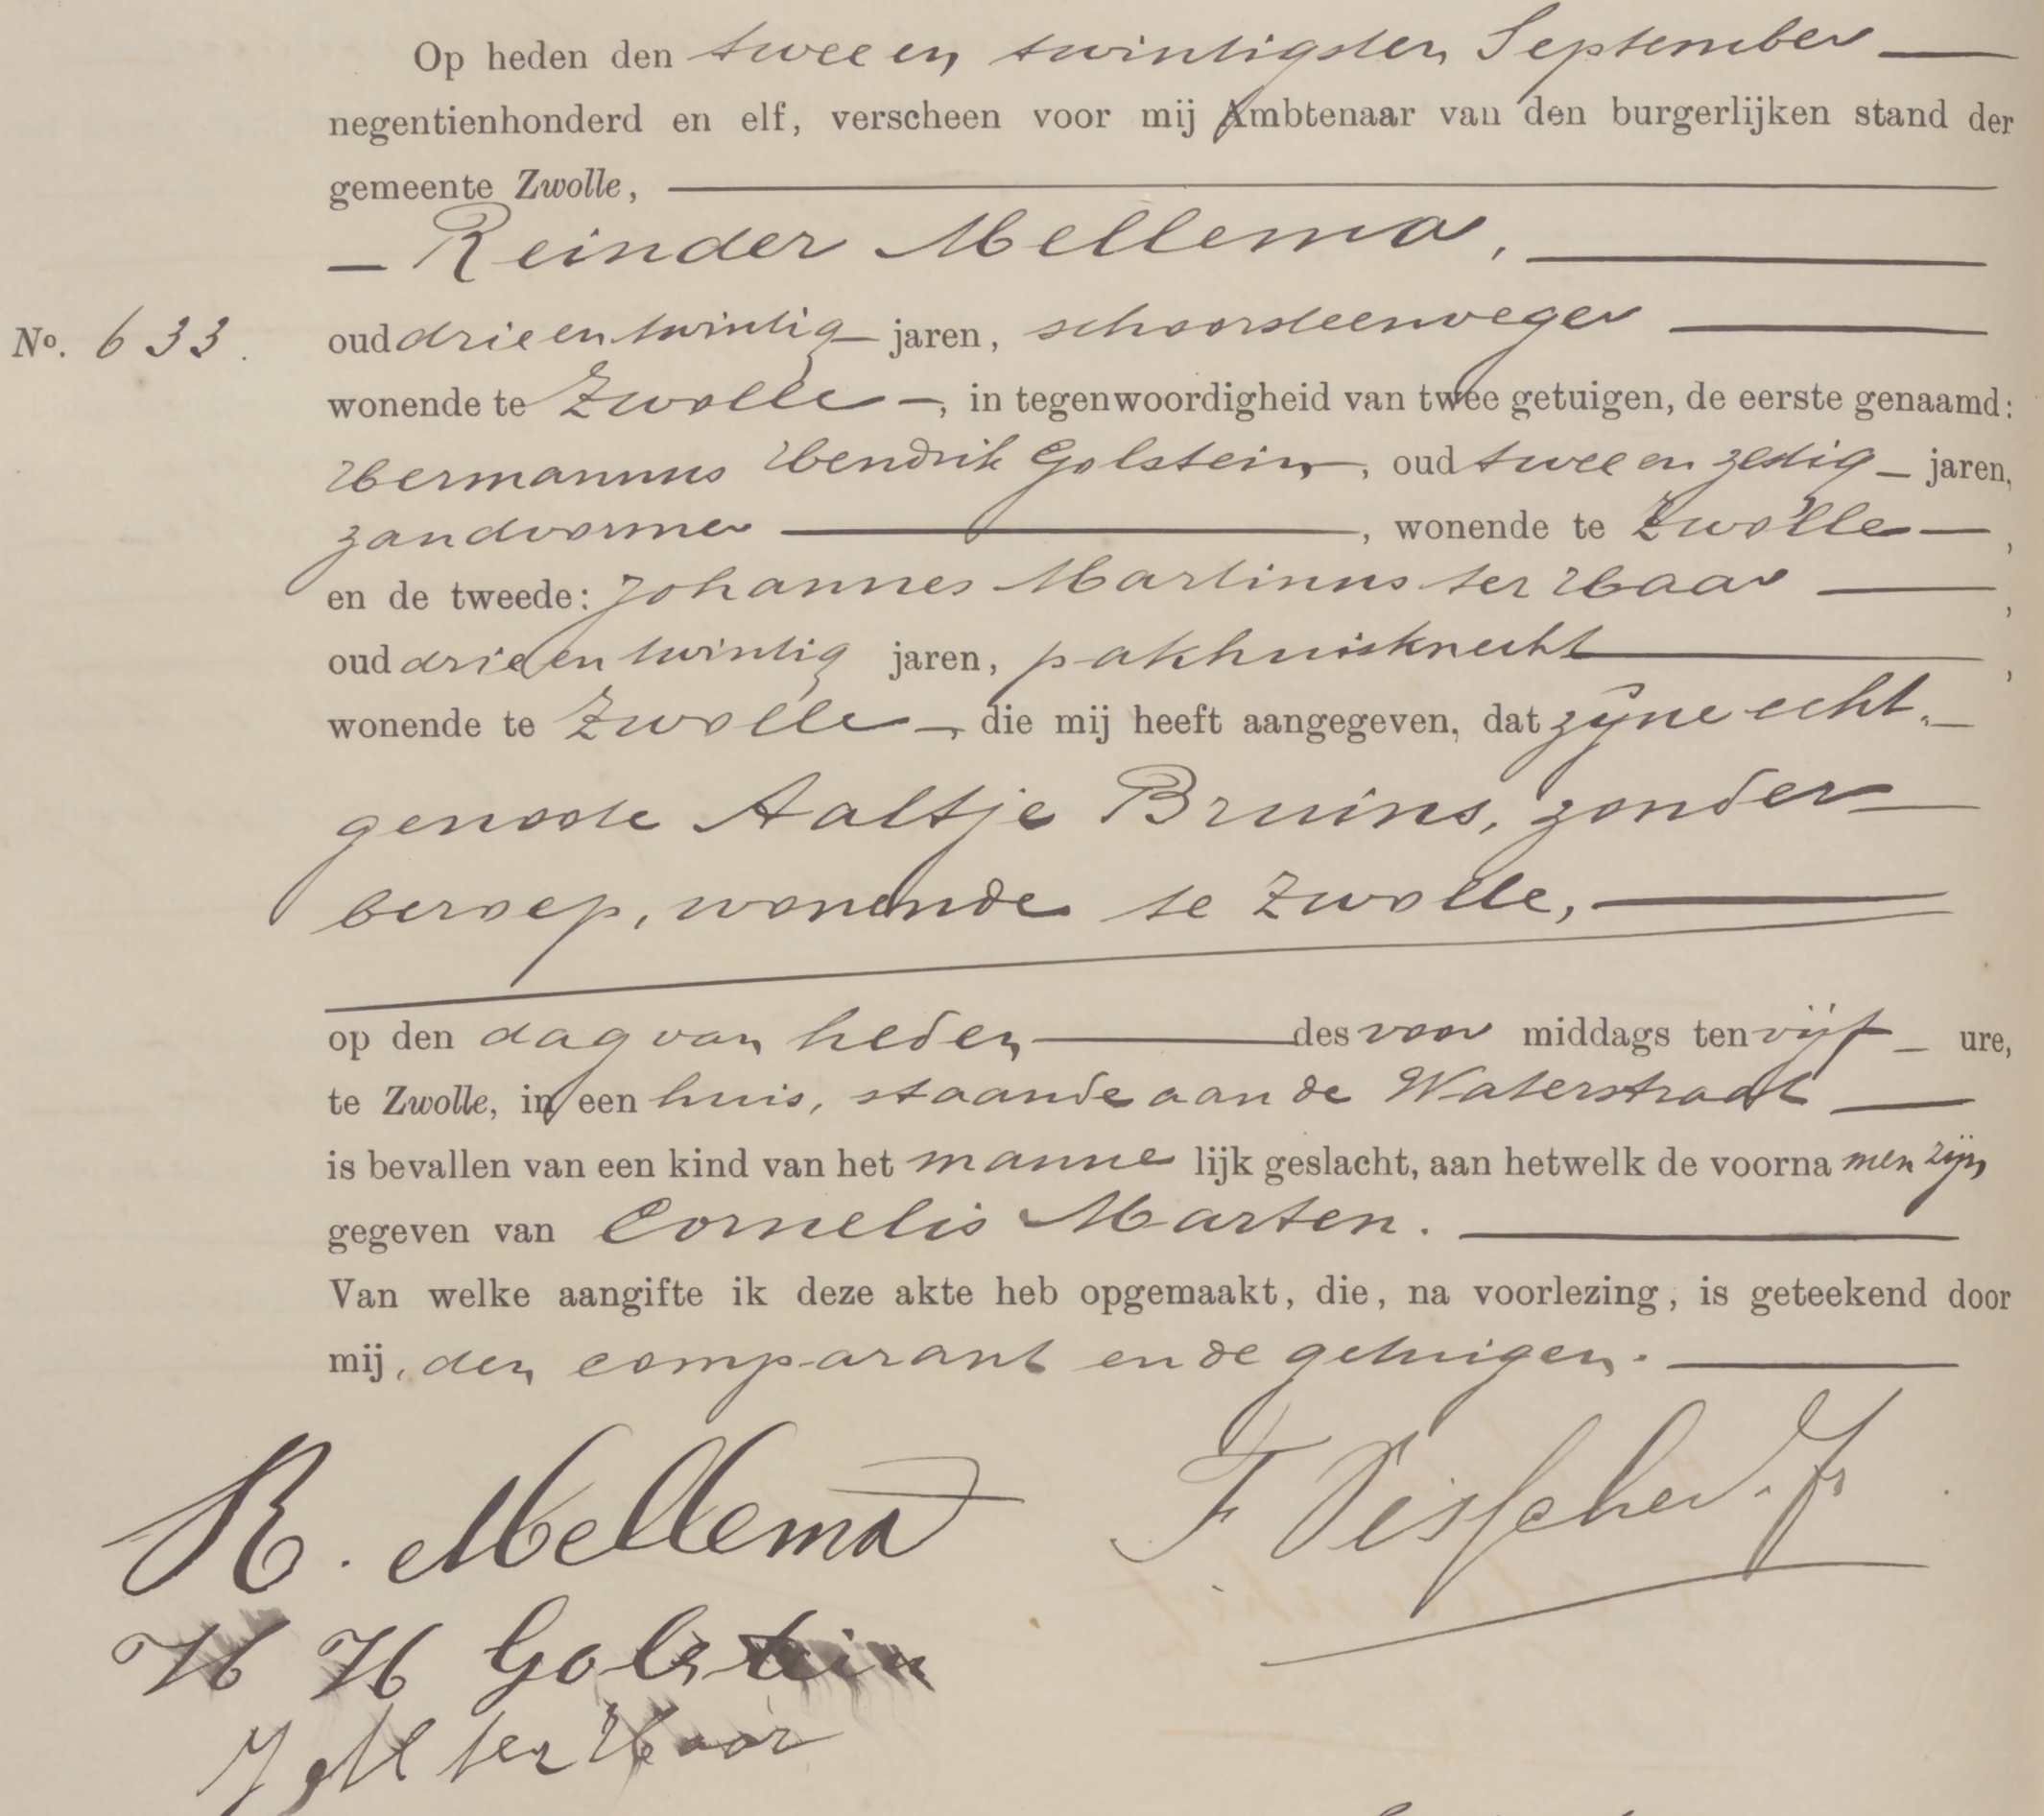 Op heden den twee en twintigsten September
negentienhonderd en elf, verscheen voor mij Ambtenaar van den burgerlijken stand der
gemeente Zwolle,
Reinder Mellema,
No. 633. oud drie en twintig jaren, schoorsteenveger
wonende te Zwolle, in tegenwoordigheid van twee getuigen, de eerste genaamd:
Hermannus Hendrik Golstein, oud twee en zestig jaren,
zandvormer, wonende te Zwolle,
en de tweede: Johannes Martinus ter Haar,
oud drie en twintig jaren, pakhuisknecht,
wonende te Zwolle, die mij heeft aangegeven, dat zijne echt-
genoote Aaltje Bruins, zonder
beroep, wonende te Zwolle,
op den dag van heden des voor middags ten vijf ure,
te Zwolle, in een huis, staande aan de Waterstraat
is bevallen van een kind van het manne lijk geslacht, aan hetwelk de voorna men zijn
gegeven van Cornelis Marten.
Van welke aangifte ik deze akte heb opgemaakt, die, na voorlezing, is geteekend door
mij, den comparant en de getuigen.
R. Mellema F Visscher Jr
H H Golstein
J M ter Haar